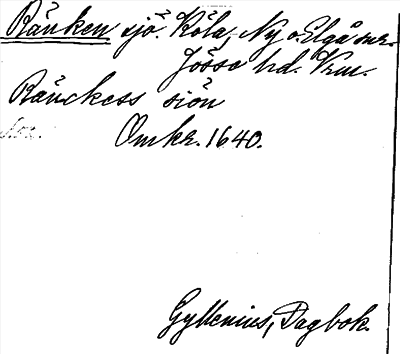 Ränken sjö. Köla, Ny o. Elgå snr.
Jösse hd. Vrm.
Ränckess siön
Omkr. 1640.
Gyllenius, Dagbok.